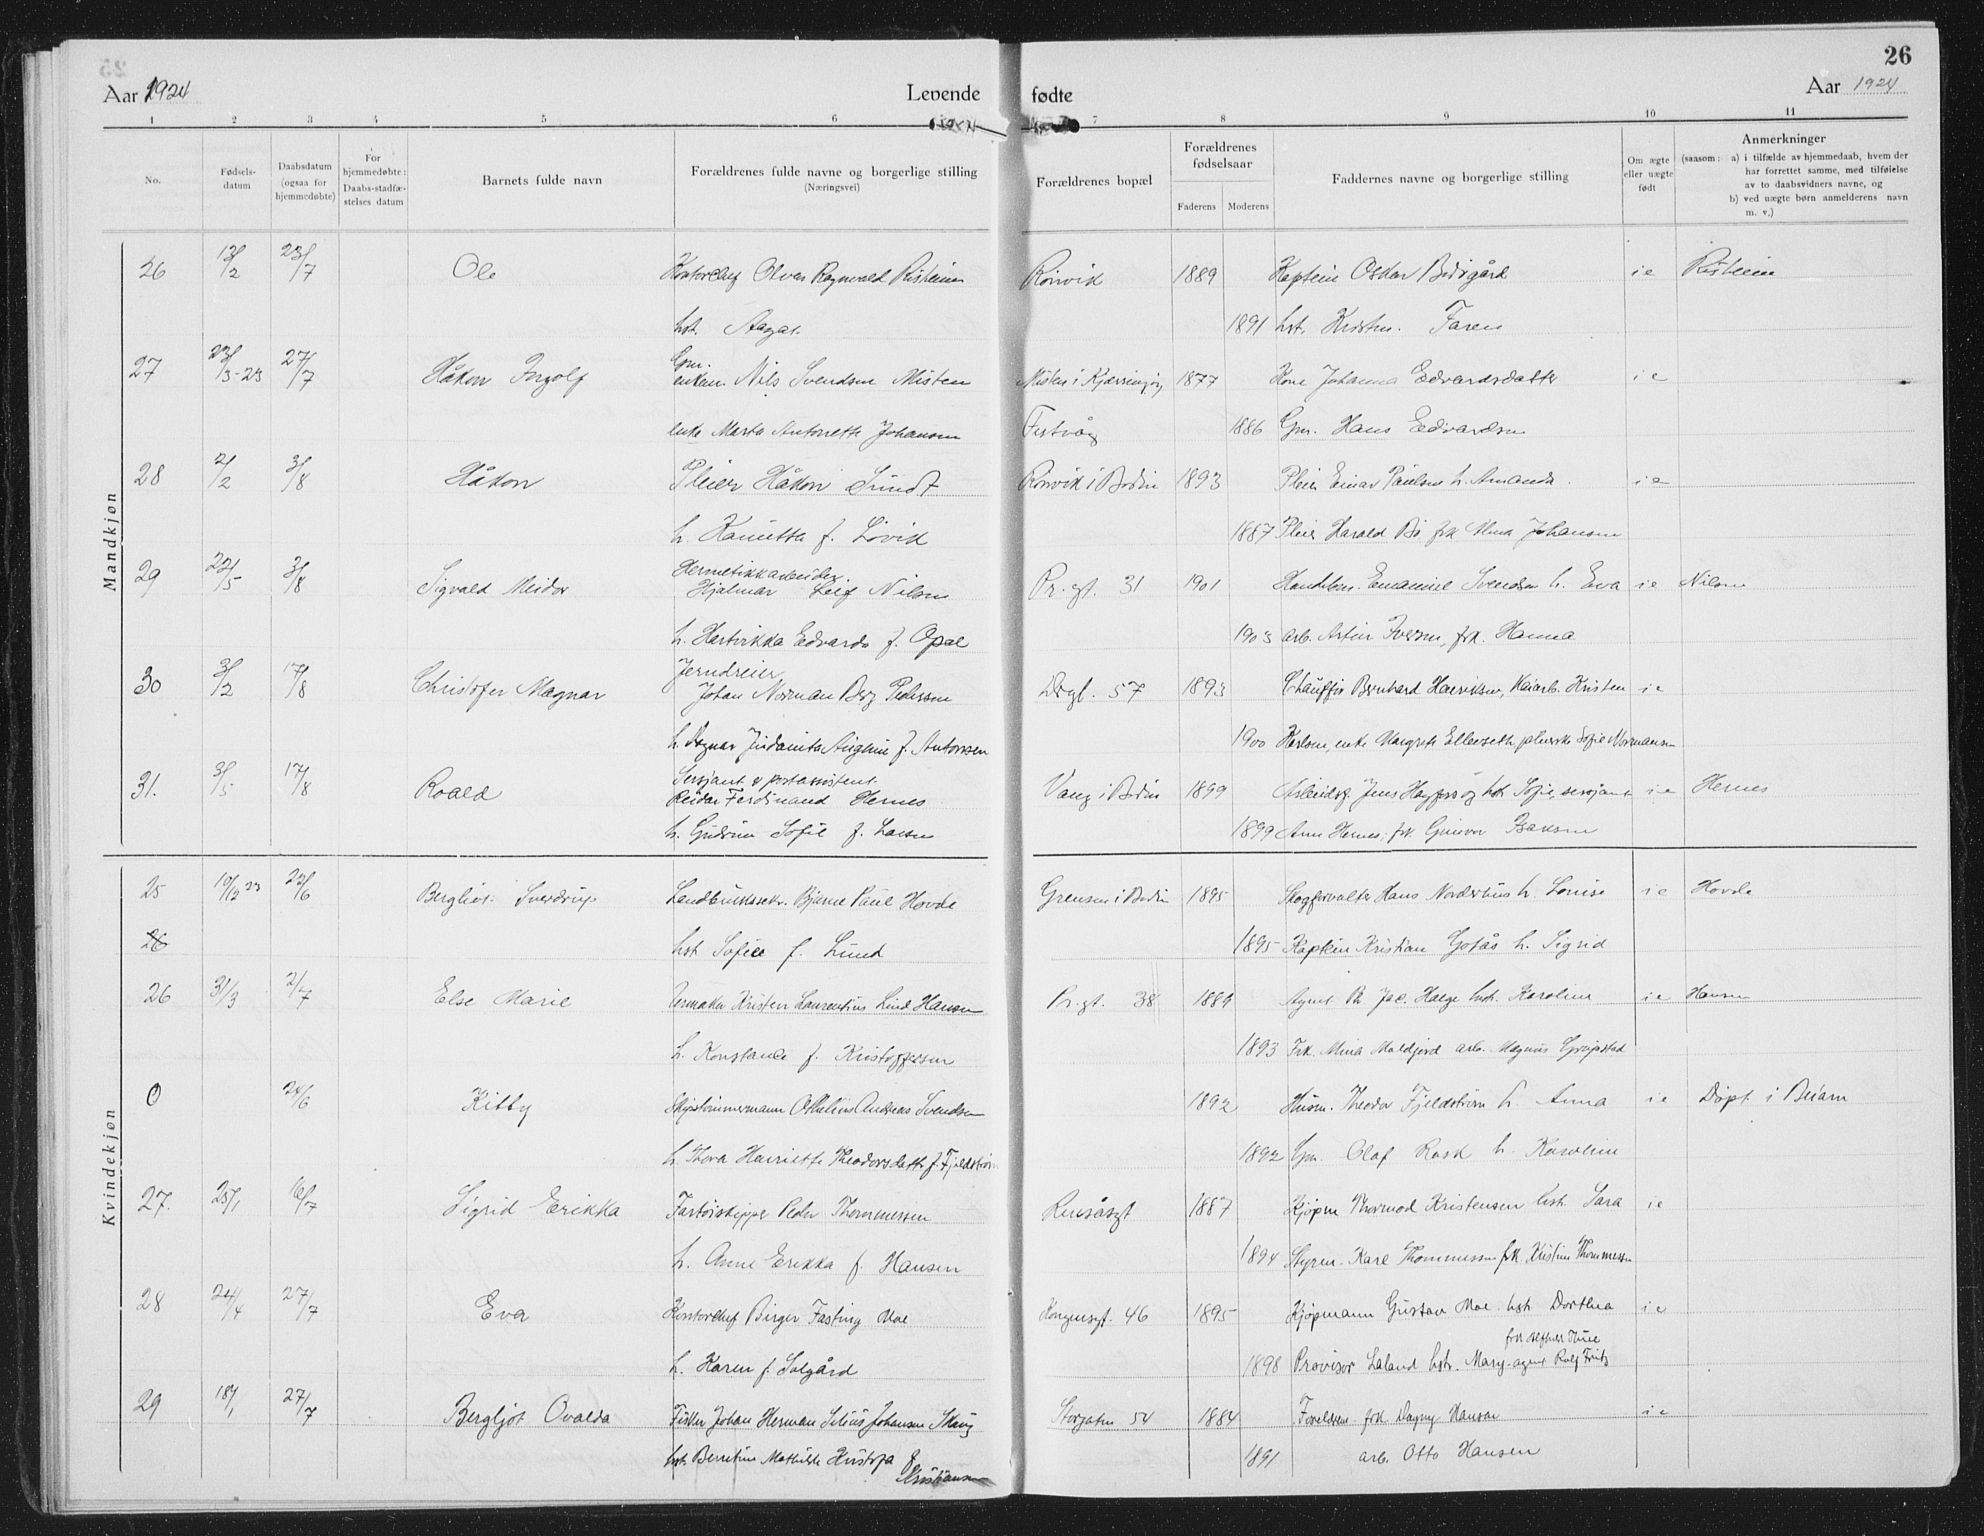 26
Aar 1924
Levende
fødte
Aar 1924
1 2 3 4 5 6 7 8 9 10 11
No.
Fødsels-
datum
Daabsdatum
(ogsaa for
hjemmedøbte)
For
hjemmedøbte:
Daabs-stadfæ-
stelses datum
Barnets fulde navn
Forældrenes fulde navne og borgerlige stilling
(Næringsvei)
Forældrenes bopæl
Forældrenes
fødselsaar
Faderens Moderens
Faddernes navne og borgerlige stilling
Om ægte
eller uægte
født
Anmerkninger
(saasom: a) i tilfælde av hjemmedaab, hvem der
har forrettet samme, med tilføielse
av to daabsvidners navne, og
b) ved uægte børn anmelderens navn
m. v.)
Mandkjøn
26 13/2 23/7 Ole Kontorchef Ragnvald Risheim Rønvik 1889 Kaptein Oskar i e Risheim
hst. Aagat. 1891 hst.
27 23/3-23 27/7 Håkon Ingolf Gm.
enkem. Nils Svendsen Misten Misten i Kjerringøy 1877 Kone Johanna Edvardsdatter i e
enke Marta Antonette Johansen Festvåg 1886 Gm. Hans Edvardsen
28 2/2 3/8 Håkon Pleier Håkon Sundt Rønvik i Bodin 1893 Pleier Einar Paulsen h. Amanda. i e
h. f. Løvik 1887 Pleier Harald Bø, frk Alma Johansen
29 22/5 3/8 Sigvald Meidor Hermetikkarbeider.
Hjalmar Leif Nilsen Pr. gt. 31 1901 Emanuel Svendsen h. Eva i e Nilsen
h. Hartvikka Edvarda f. Opal 1903 arb. Artur Iversen, frk. Hanna
30 3/2 17/8 Christofer Magnar Jerndreier
Johan Norman Berg Pedersen Drgt. 57 1893 Chauffør Bernhard Henriksen, Kaiarb. Kristen i e
h. Dagnar f. Antonsen 1900 Karlsen, enke Margrete Ellerseth, pleierske Sofie Normansen
31. 3/5 17/8 Roald Sersjant & postassistent
Reidar Ferdinand Hernes Vang i Bodin 1899 Arbeidsf. Jens hst Sofie, sersjant i e Hernes
h. Gudrun Sofie f. Larsen 1899 Arne Hernes, frk. Gunvor Isaksen
Kvindekjøn
25 10/12 23 22/6 Bergliot Sverdrup Landbrukssekr. Bjarne Paul Hovde Grensen i Bodin 1895 Skogforvalter Hans Norderhus h. Louise i e Hovde
26 hst Sofie f. Lund 1895 Kaptein Kristian Gotås h. Sigrid
26 31/3 2/7 Else Marie Urmaker Kristen Laurentius Lind Hansen Pr. gt. 38 1889 Agent Jac. Hals hst. Karoline i e Hansen
h. Konstance f. Kristoffersen 1893 Frk. Mina Moldjord arb. Magnus
0 24/6 Kitty Skipstømmermann Othelius Andreas Svendsen 1892 Husm. Theodor Fjeldstrøm h. Anna i e Døpt i Beiarn
h. Thora Henriette Theodorsdatter f. Fjeldstrøm 1892 Gm. Olaf Rask h. Karoline
27. 25/1 6/7 Sigrid Erikka Fartøiskipper Peder Thommessen Rensåsgt 1887 Kjøpm Thormod Kristensen hst. Sara i e
h. Anne Erikka f. Hansen 1894 Styrm. Karl Thommessen frk. Kristine Thommessen
28 24/4 27/7 Eva Kontorchef Birger Fasting Moe Kongensgt. 46 1895 Kjøpmann Gustav Moe hst. Dorthea i e
h. Karen f. Solgård 1898 Provisor Laland hst. Mary agent Rolf Fritz
29 18/1 27/7 Bergljot Ovalda Fisker Johan Herman Johansen Skaug Storgaten 54 1884 Foreldrene frk Dagny Hansen i e
hst. Berntine Mathilde f. Kristiansen 1891 arb. Otto Hansen